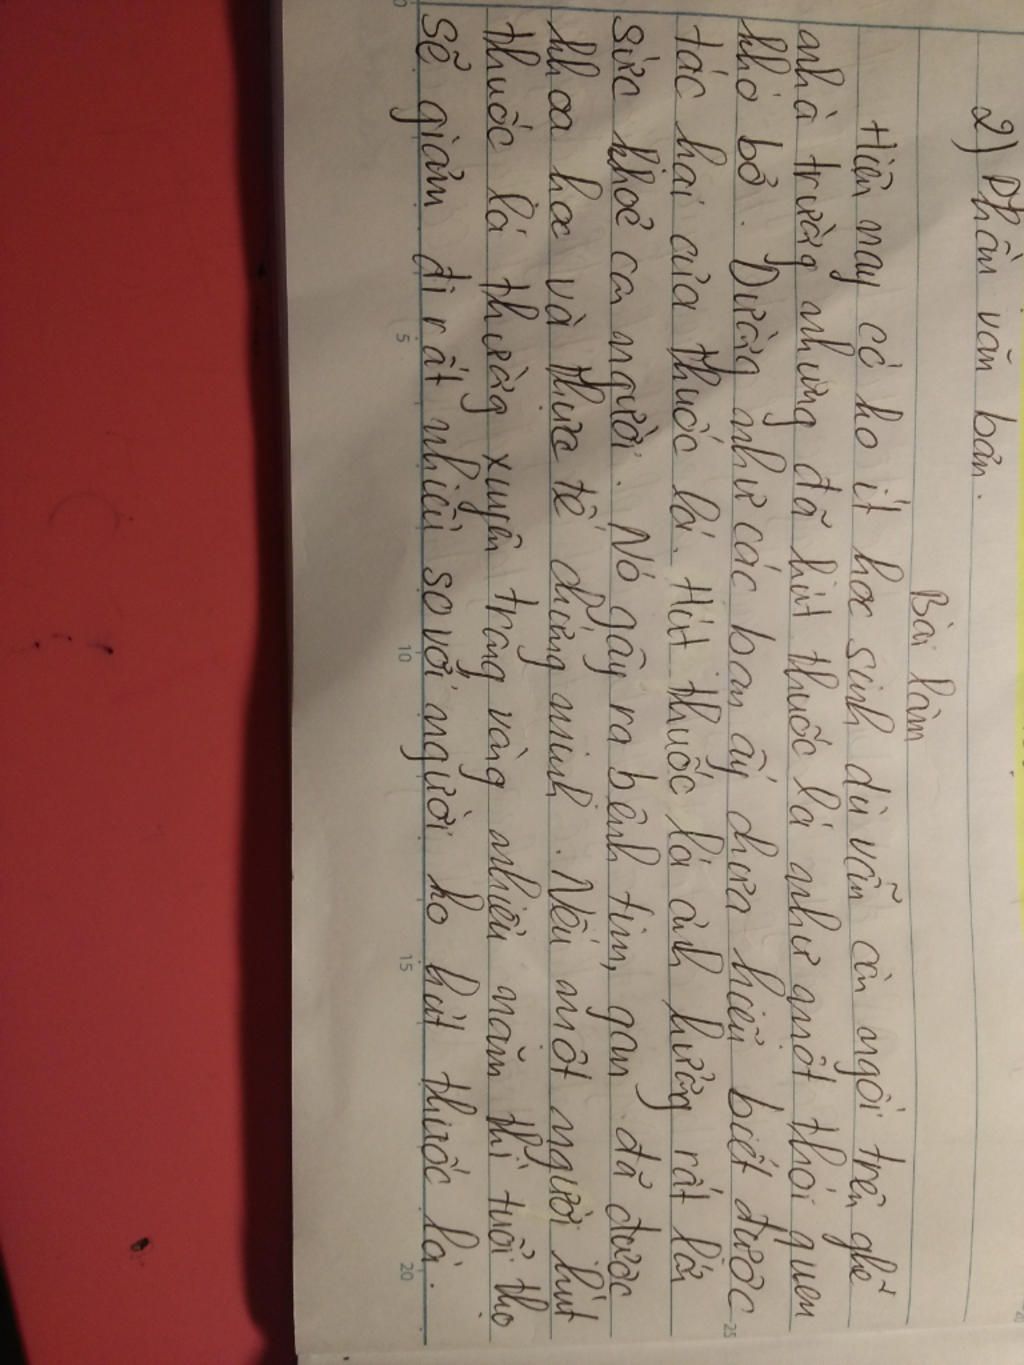 2) Phần văn bản.
Bài làm
Hiện nay có ko ít học sinh dù vẫn còn ngồi trên ghế
nhà trường nhưng đã hút thuốc lá như một thói quen
khó bỏ. Dường như các bạn ấy chưa hiểu biết được
tác hại của thuốc lá. Hút thuốc lá ảnh hưởng rất lớn
sức khoẻ con người. Nó gây ra bệnh tim, gan đã được
khoa học và thực tế chứng minh. Nếu một người hút
thuốc lá thường xuyên trong vòng nhiều năm thì tuổi thọ
sẽ giảm đi rất nhiều so với người ko hút thuốc lá.
5
10
15
20
25